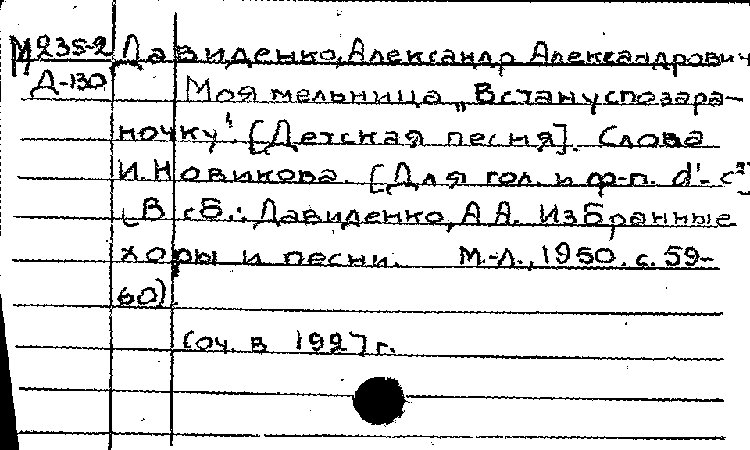 М235-2 Давиденко, Александр Александрович
Д-130 Моя мельница „Встану спозара-
ночку". [Детская песня]. Слова
И. Новикова. [Для гол. и ф-п. d'- c²]
(В сб.: Давиденко, А А. Избранные
хоры и песни. М.-Л., 1950. с. 59-
60)
(оч. в 1927 г.